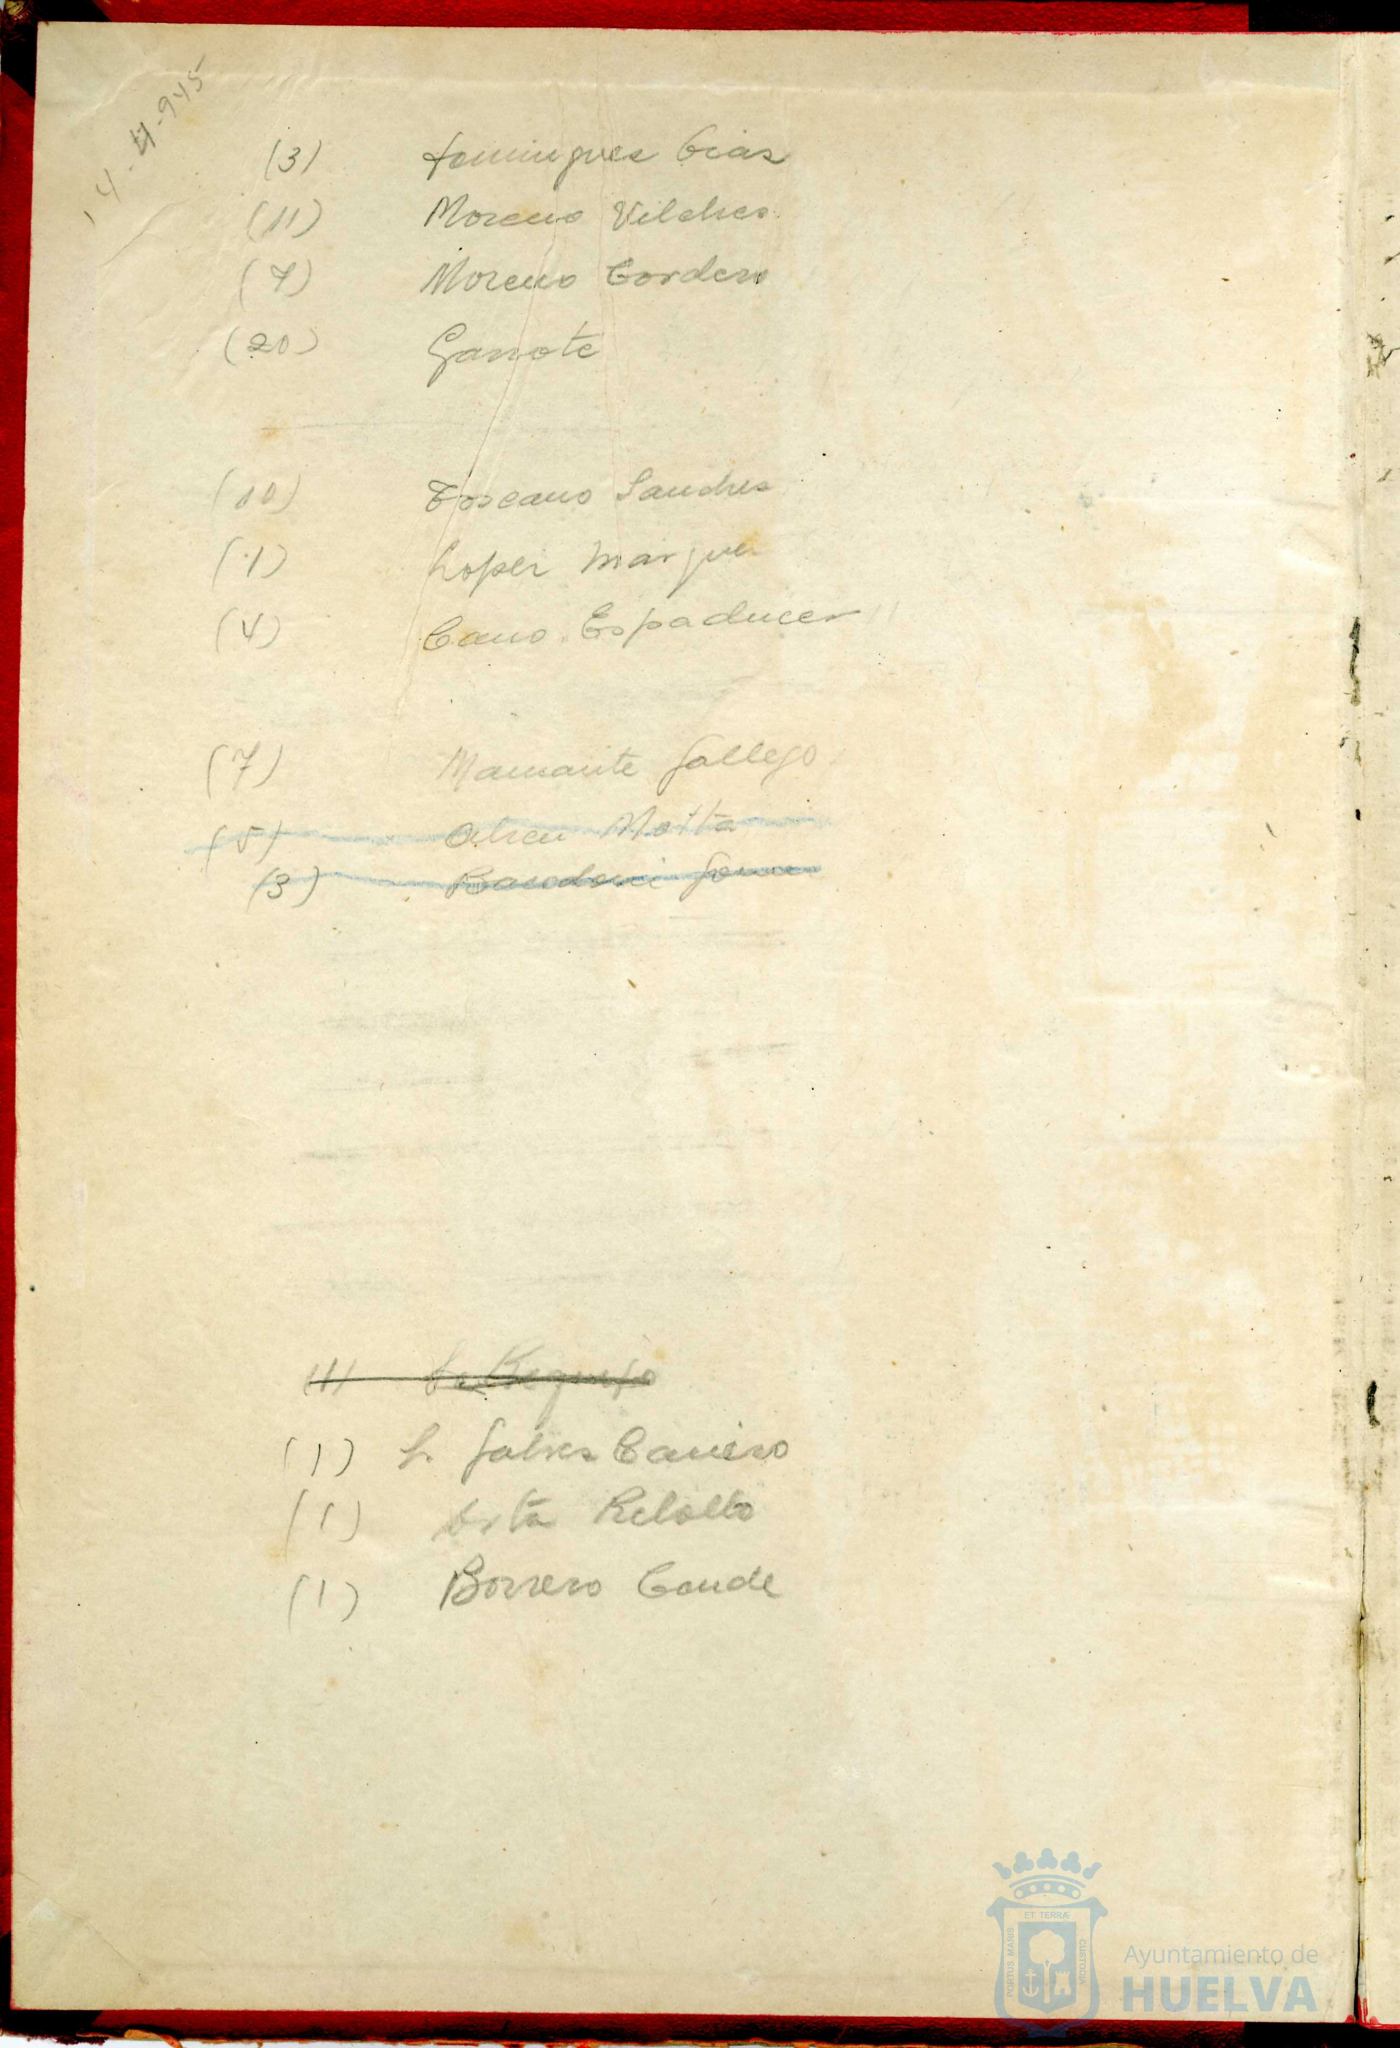 14-4-945
(3) Domingues Crias
(11) Moreno Vilches
(7) Moreno Cordero
(20) Garrote
(10) Toscano Sanches
(1) Lopez Marque
(4) Cano Espaducer
(7) Mamante Gallego
(5) Abreu Motta
(3)
(1) Requejo
(1) L. Galves Caniero
(1) Orta Rebollo
(1) Borrero Conde
PORTUS MARIS ET TERRÆ CUSTODIA
Ayuntamiento de
HUELVA